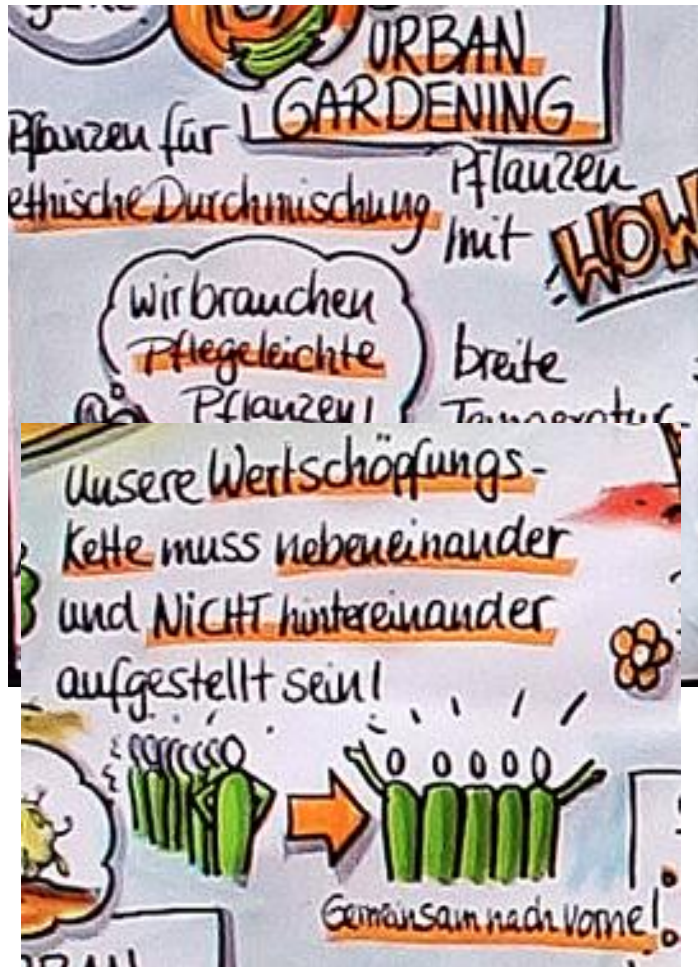 URBAN
GARDENING
Pflanzen für
ethische Durchmischung
Pflanzen
mit
WOW
wir brauchen
Pflegeleichte
Pflanzen!
breite
Temperatur
Unsere Wertschöpfungs-
Kette muss nebeneinander
und NiCHT hintereinander
aufgestellt sein!
Gemeinsam nach vorne!